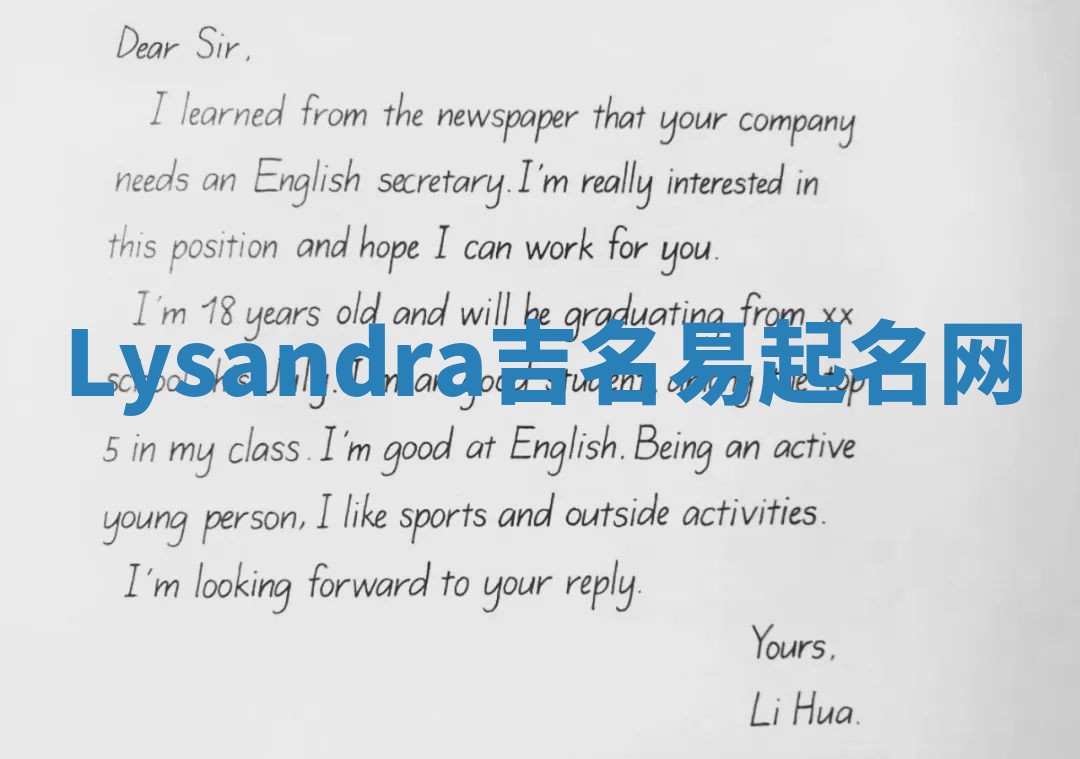 Dear Sir,
I learned from the newspaper that your company
needs an English secretary. I'm really interested in
this position and hope I can work for you.
I'm 18 years old and will be graduating from xx
Lysandra吉名易起名网
school this July. I'm a good student, among the top
5 in my class. I'm good at English. Being an active
young person, I like sports and outside activities.
I'm looking forward to your reply.
Yours,
Li Hua.